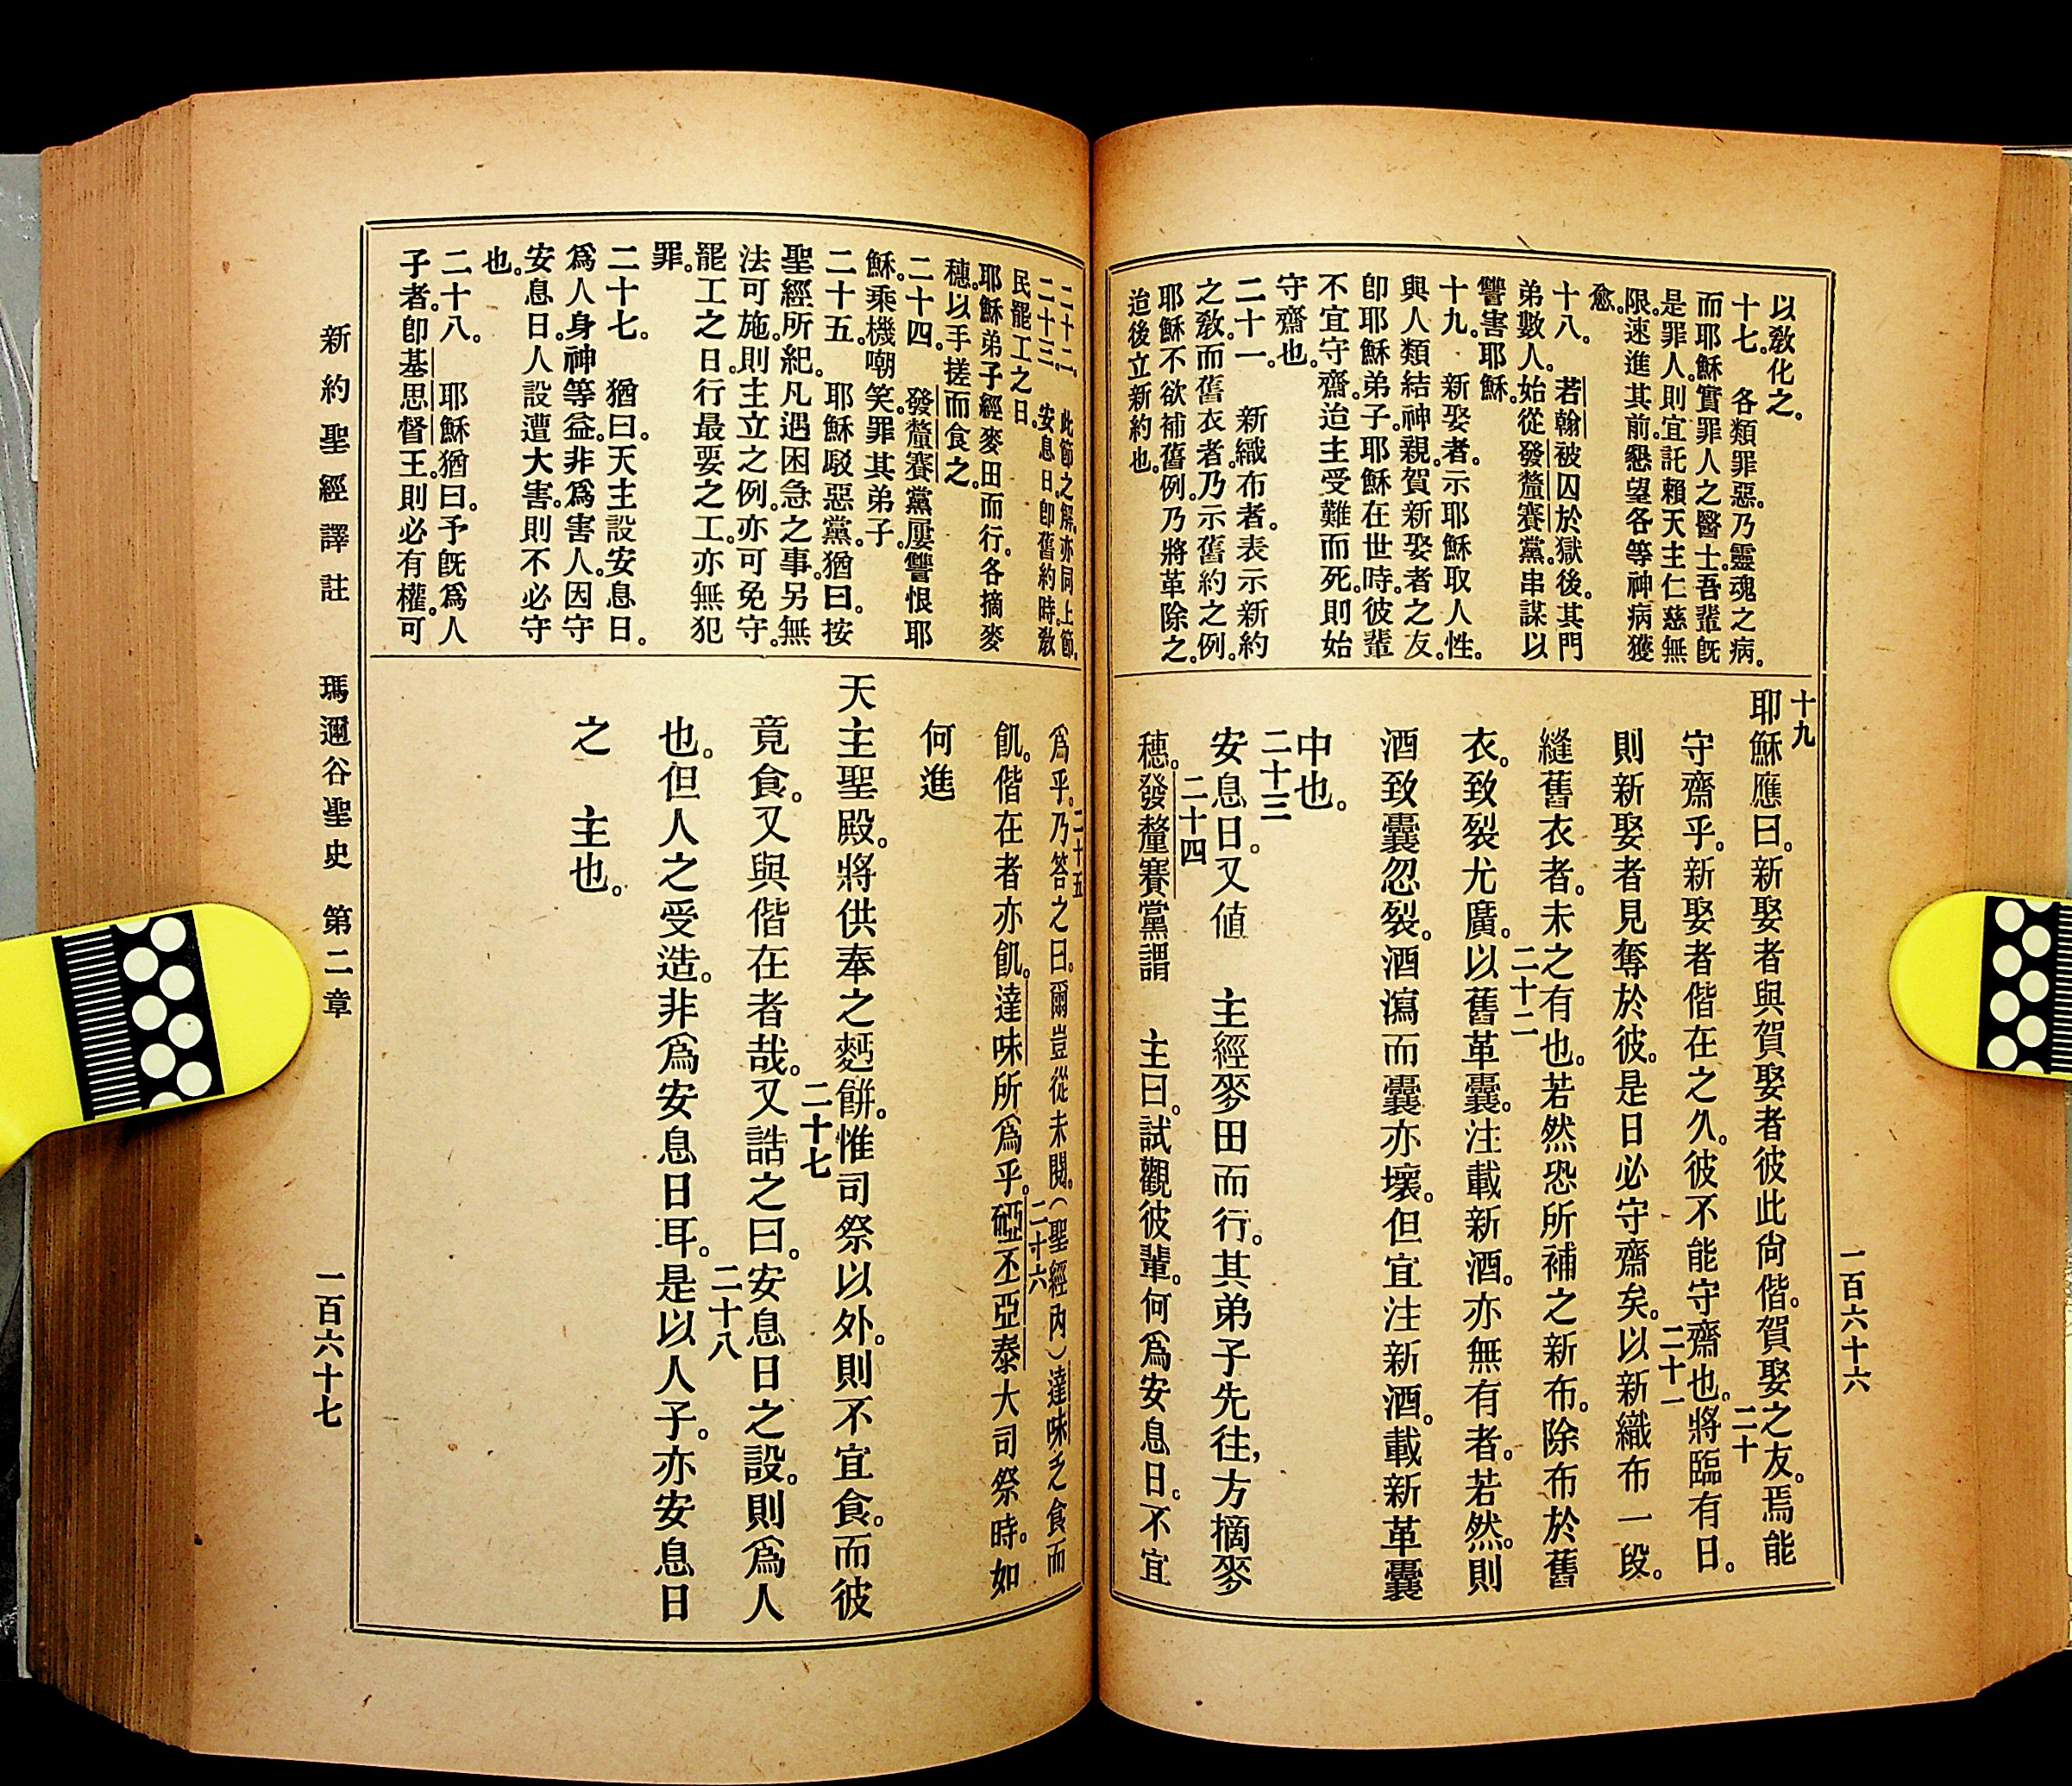 一百六十六
以敎化之。
十七。　各類罪惡。乃靈魂之病。
而耶穌實罪人之醫士。吾輩旣
是罪人。則宜託賴天主仁慈無
限。速進其前。懇望各等神病獲
愈。
十八。　若翰被囚於獄後。其門
弟數人。始從發釐賽黨。串謀以
讐害耶穌。
十九。　新娶者。示耶穌取人性。
與人類結神親。賀新娶者之友。
卽耶穌弟子。耶穌在世時。彼輩
不宜守齋。迨主受難而死。則始
守齋也。
二十一。　新織布者。表示新約
之敎。而舊衣者。乃示舊約之例。
耶穌不欲補舊例。乃將革除之。
迨後立新約也。
十九
耶穌應曰。新娶者與賀娶者彼此尙偕。賀娶之友。焉能
二十
守齋乎。新娶者偕在之久。彼不能守齋也。將臨有日。
二十一
則新娶者見奪於彼。是日必守齋矣。以新織布一段。
縫舊衣者。未之有也。若然恐所補之新布。除布於舊
二十二
衣。致裂尤廣。以舊革囊。注載新酒。亦無有者。若然。則
酒致囊忽裂。酒瀉而囊亦壞。但宜注新酒。載新革囊
中也。
二十三
安息日。又値　主經麥田而行。其弟子先往,方摘麥
二十四
穗。發釐賽黨謂　主曰。試觀彼輩。何爲安息日。不宜
二十二。　此節之解。亦同上節。
二十三。　安息日。卽舊約時。敎
民罷工之日。
耶穌弟子經麥田而行。各摘麥
穗。以手搓而食之。
二十四。　發釐賽黨屢讐恨耶
穌。乘機嘲笑。罪其弟子。
二十五。　耶穌駁惡黨。猶曰。按
聖經所紀。凡遇困急之事。另無
法可施。則主立之例。亦可免守。
罷工之日。行最要之工。亦無犯
罪。
二十七。　猶曰。天主設安息日。
爲人身神等益。非爲害人。因守
安息日。人設遭大害。則不必守
也。
二十八。　耶穌猶曰。予旣爲人
子者。卽基思督王。則必有權。可
二十五
爲乎。乃答之曰。爾豈從未閱。(聖經內)達味乏食而
二十六
飢。偕在者亦飢。達味所爲乎。碀丕亞泰大司祭時。如
何進
天主聖殿。將供奉之麪餅。惟司祭以外。則不宜食。而彼
二十七
竟食。又與偕在者哉。又誥之曰。安息日之設。則爲人
二十八
也。但人之受造。非爲安息日耳。是以人子。亦安息日
之　主也。
新約聖經譯註　瑪邇谷聖史　第二章　一百六十七